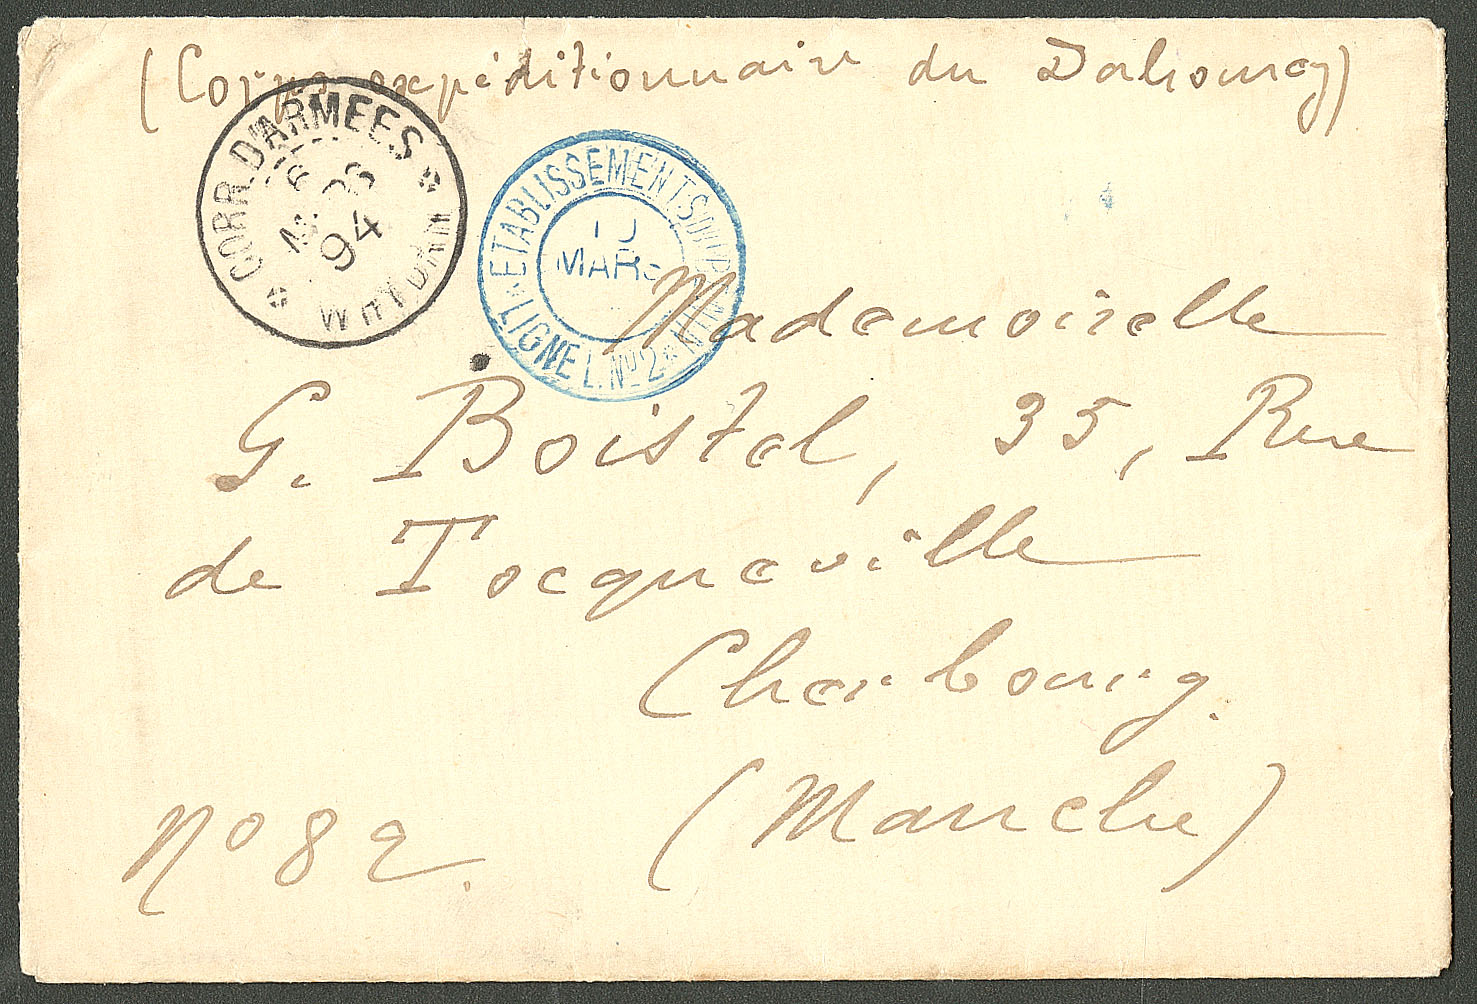 (Corps expéditionnaire du Dahomey)
CORR. D'ARMEES
MARS
94
WHYDAH
ETABLISSEMENTS DU BENIN
10
MARS
LIGNE L. No 2
Mademoiselle
G. Boistel, 35, Rue
de Tocqueville
Cherbourg.
(Manche)
No 82.